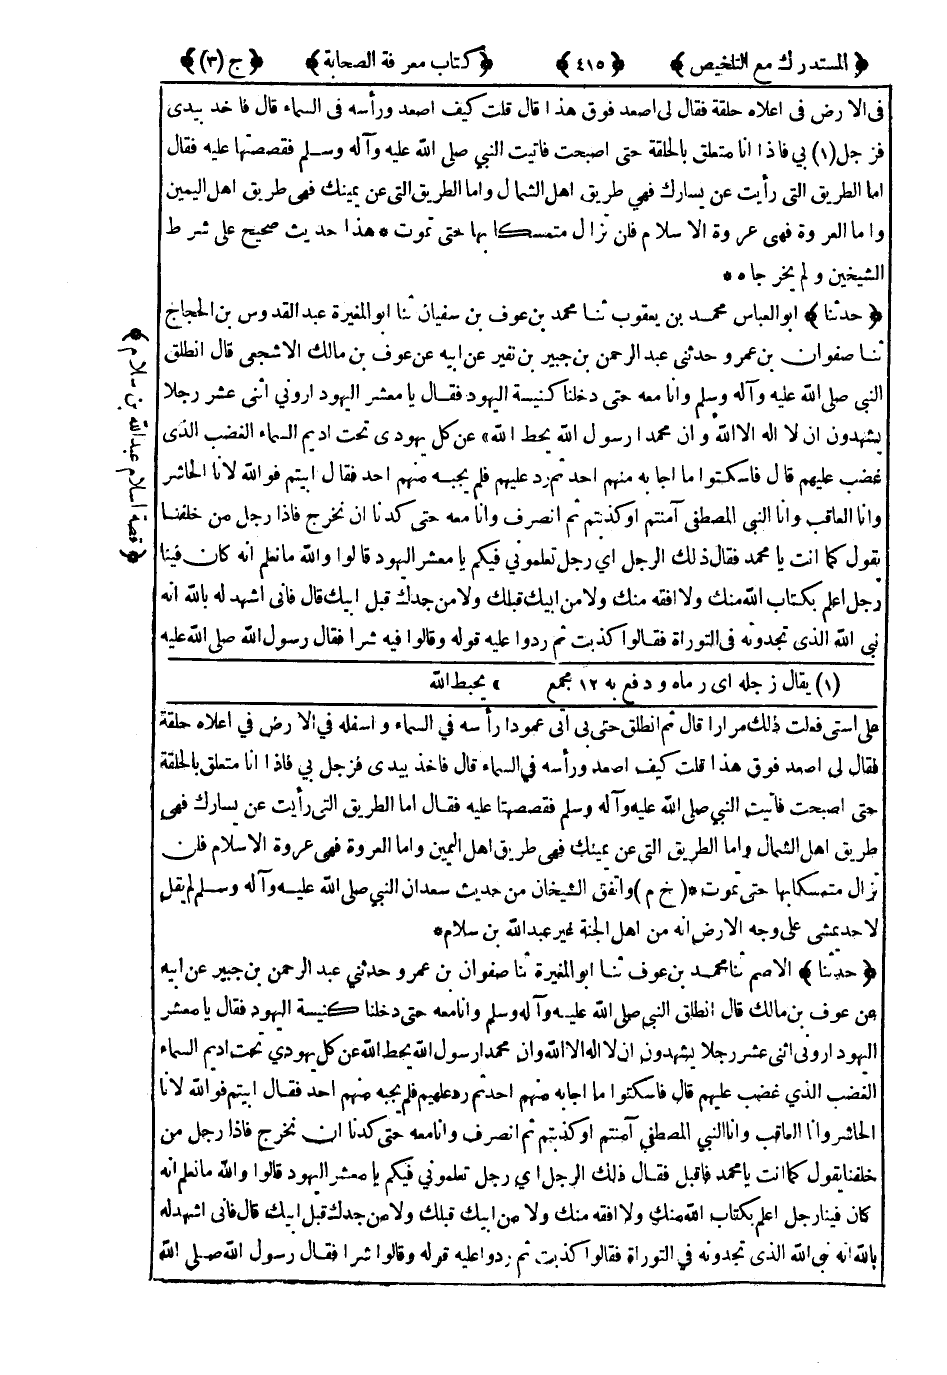 ﴿ المستدرك مع التلخيص ﴾ ﴿ ٤١٥ ﴾ ﴿ كتاب معرفة الصحابة ﴾ ﴿ ج (٣) ﴾
فى الارض فى اعلاه حلقة فقال لى اصعد فوق هذا قال قلت كيف اصعد ورأسه فى السماء قال فاخذ بيدى
فزجل (١) بي فاذا انا متعلق بالحلقة حتى اصبحت فاتيت النبي صلى الله عليه وآله وسلم فقصصتها عليه فقال
اما الطريق التى رأيت عن يسارك فهي طريق اهل الشمال واما الطريق التى عن يمينك فهى طريق اهل اليمين
واما العروة فهى عروة الاسلام فلن تزال متمسكا بها حتى تموت * هذا حديث صحيح على شرط
الشيخين ولم يخرجاه *
﴿ حدثنا ﴾ ابو العباس محمد بن يعقوب ثنا محمد بن عوف بن سفيان ثنا ابو المغيرة عبد القدوس بن الحجاج
ثنا صفوان بن عمرو حدثنى عبد الرحمن بن جبير بن نفير عن ابيه عن عوف بن مالك الاشجعى قال انطلق
النبى صلى الله عليه وآله وسلم وانا معه حتى دخلنا كنيسة اليهود فقال يا معشر اليهود ارونى اثنى عشر رجلا
يشهدون ان لا اله الا الله وان محمدا رسول الله يحط الله » عن كل يهودى تحت اديم السماء الغضب الذى
غضب عليهم قال فاسكتوا ما اجابه منهم احد ثم رد عليهم فلم يجبه منهم احد فقال ابيتم فوالله لانا الحاشر
وانا العاقب وانا النبى المصطفى آمنتم او كذبتم ثم انصرف وانا معه حتى كدنا ان نخرج فاذا رجل من خلفنا
يقول كما انت يا محمد فقال ذلك الرجل اي رجل تعلموني فيكم يا معشر اليهود قالوا والله ما نعلم انه كان فينا
رجل اعلم بكتاب الله منك ولا افقه منك ولا من ابيك قبلك ولا من جدك قبل ابيك قال فانى اشهد له بالله انه
نبي الله الذى تجدونه فى التوراة فقالوا كذبت ثم ردوا عليه قوله وقالوا فيه شرا فقال رسول الله صلى الله عليه
﴿ قصة اسلام عبد الله بن سلام ﴾
(١) يقال زجله اى رماه ودفع به ١٢ مجمع » يحبط الله
على استى فعلت ذلك مرارا قال ثم انطلق حتى بى اتى عمودا رأسه في السماء واسفله في الارض في اعلاه حلقة
فقال لى اصعد فوق هذا قلت كيف اصعد ورأسه في السماء قال فاخذ بيدى فزجل بي فاذا انا متعلق بالحلقة
حتى اصبحت فاتيت النبي صلى الله عليه وآله وسلم فقصصتها عليه فقال اما الطريق التى رأيت عن يسارك فهى
طريق اهل الشمال واما الطريق التى عن يمينك فهى طريق اهل اليمين واما العروة فهى عروة الاسلام فلن
تزال متمسكا بها حتى تموت * ( خ م ) واتفق الشيخان من حديث سعد ان النبي صلى الله عليه وآله وسلم لم يقل
لاحد يمشى على وجه الارض انه من اهل الجنة غير عبد الله بن سلام *
﴿ حدثنا ﴾ الاصم ثنا محمد بن عوف ثنا ابو المغيرة ثنا صفوان بن عمرو حدثني عبد الرحمن بن جبير عن ابيه
عن عوف بن مالك قال انطلق النبي صلى الله عليه وآله وسلم وانا معه حتى دخلنا كنيسة اليهود فقال يا معشر
اليهود ارونى اثنى عشر رجلا يشهدون ان لا اله الا الله وان محمدا رسول الله يحط الله عن كل يهودي تحت اديم السماء
الغضب الذي غضب عليهم قال فاسكتوا ما اجابه منهم احد ثم رد عليهم فلم يجبه منهم احد فقال ابيتم فوالله لانا
الحاشر وانا العاقب وانا النبي المصطفى آمنتم او كذبتم ثم انصرف وانا معه حتى كدنا ان نخرج فاذا رجل من
خلفنا يقول كما انت يا محمد فاقبل فقال ذلك الرجل اي رجل تعلموني فيكم يا معشر اليهود قالوا والله ما نعلم انه
كان فينا رجل اعلم بكتاب الله منك ولا افقه منك ولا من ابيك قبلك ولا من جدك قبل ابيك قال فانى اشهد له
بالله انه نبي الله الذى تجدونه في التوراة فقالوا كذبت ثم ردوا عليه قوله وقالوا شرا فقال رسول الله صلى الله